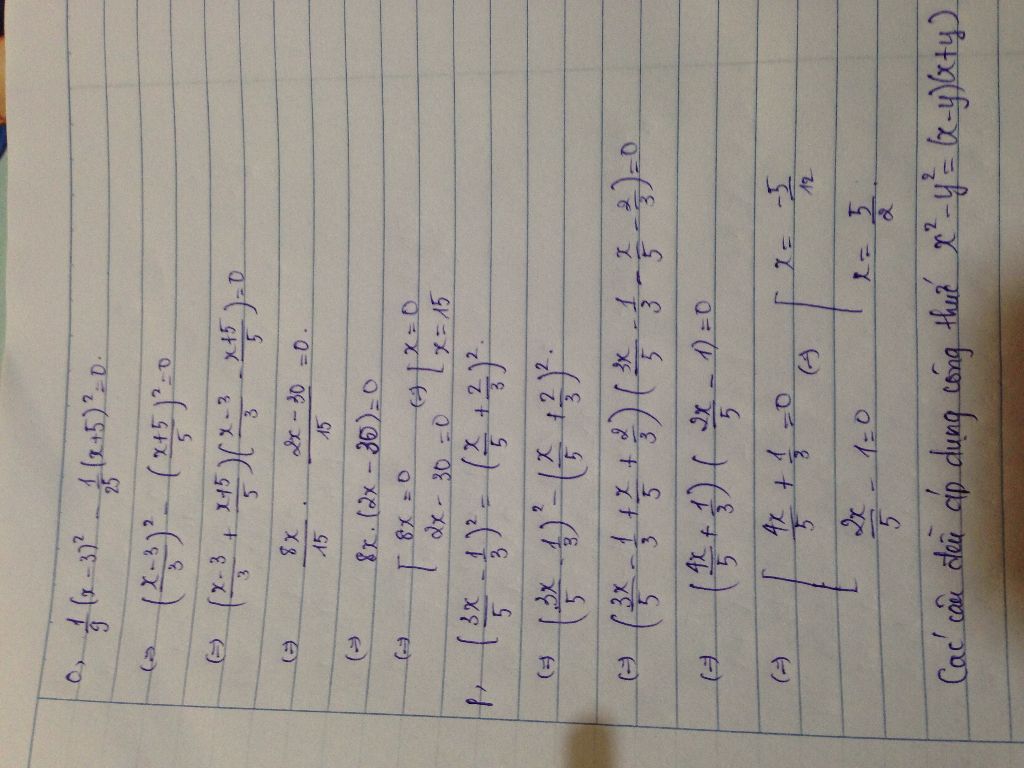 o, 1/9 (x-3)² - 1/25 (x+5)² = 0.
(=) ((x-3)/3)² - ((x+5)/5)² = 0
(=) ((x-3)/3 + (x+5)/5) ((x-3)/3 - (x+5)/5) = 0
(=) 8x/15 . (2x-30)/15 = 0.
(=) 8x. (2x-30) = 0
(=) [ 8x = 0 (=) [ x = 0
2x - 30 = 0 x = 15
p, (3x/5 - 1/3)² = (x/5 + 2/3)².
(=) (3x/5 - 1/3)² - (x/5 + 2/3)².
(=) (3x/5 - 1/3 + x/5 + 2/3) (3x/5 - 1/3 - x/5 - 2/3) = 0
(=) (4x/5 + 1/3) (2x/5 - 1) = 0
(=) [ 4x/5 + 1/3 = 0 (=) [ x = -5/12
2x/5 - 1 = 0 x = 5/2.
Các câu đều áp dụng công thức x² - y² = (x-y)(x+y)